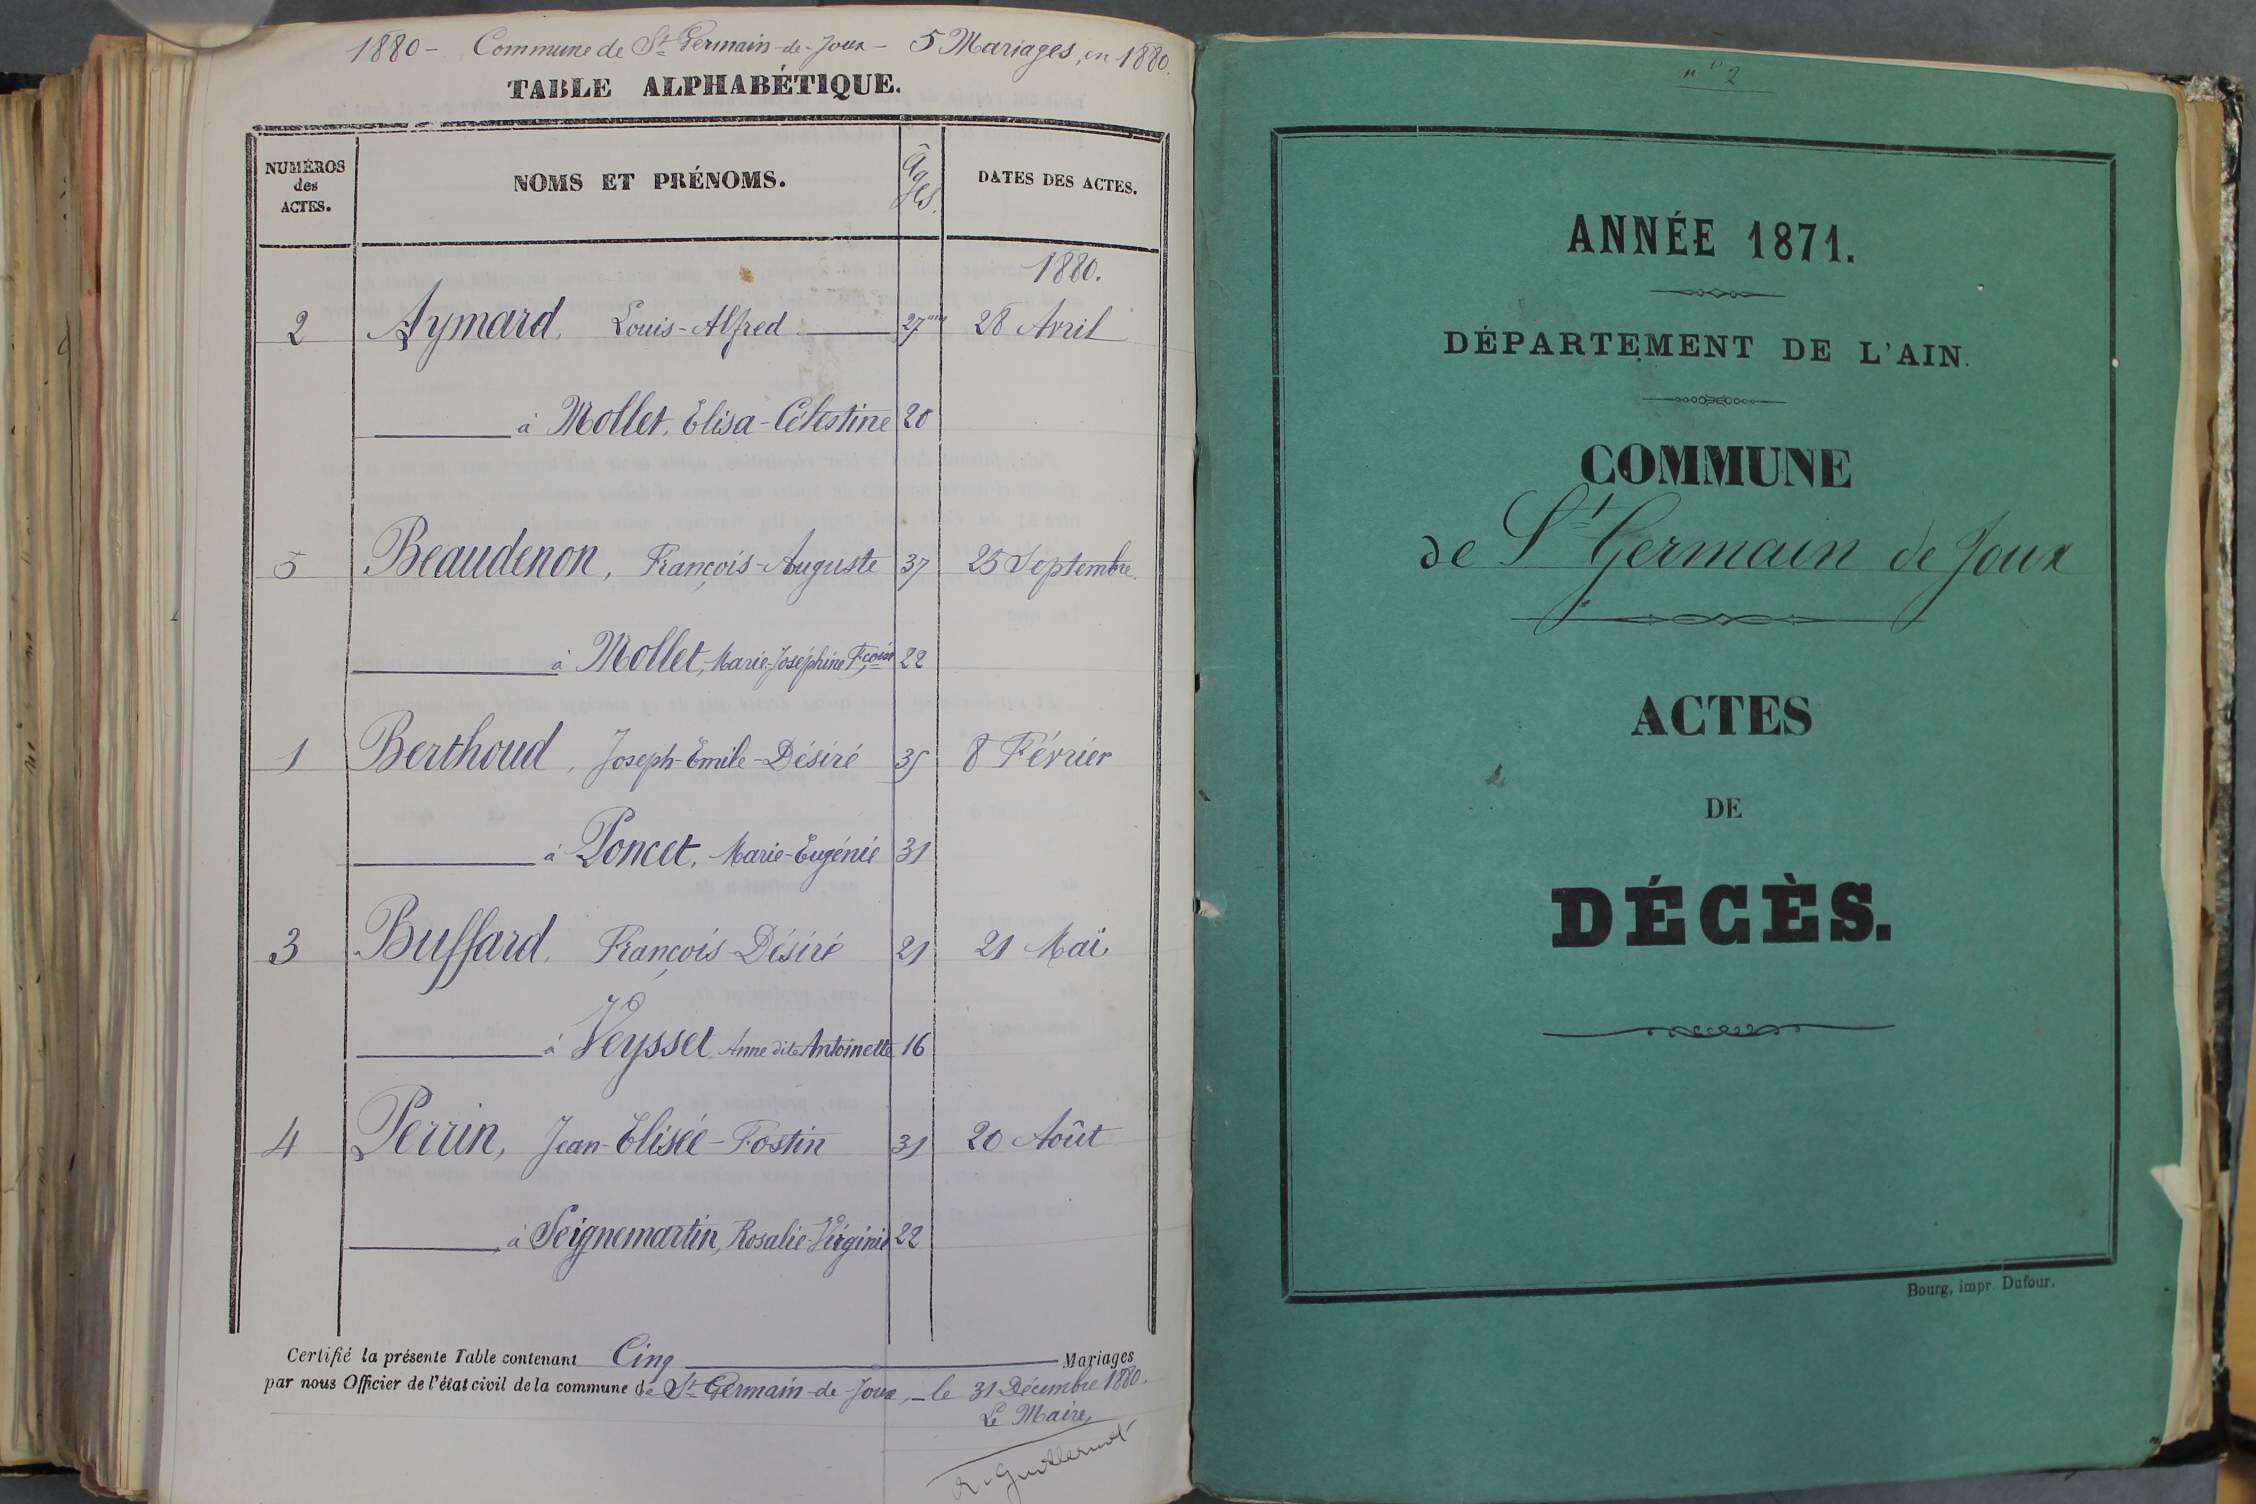 1880 - Commune de St Germain-de-Joux - 5 Mariages, en 1880.
TABLE ALPHABÉTIQUE.
NUMÉROS
des
ACTES.
NOMS ET PRÉNOMS.
Âges.
DATES DES ACTES.
1880.
2 Aymard, Louis-Alfred 27 ans 28 Avril
à Mollet, Elisa-Célestine 20
5 Beaudenon, François-Auguste 37 25 Septembre.
à Mollet, Marie-Joséphine Fçoise 22
1 Berthoud, Joseph-Emile-Désiré 35 8 Février
à Poncet, Marie-Eugénie 31
3 Buffard, François Désiré 21 21 Mai
à Veysset, Anne dite Antoinette 16
4 Perrin, Jean-Elisée-Fostin 31 20 Août
à Seignemartin, Rosalie-Virginie 22
Certifié la présente Table contenant Cinq Mariages
par nous Officier de l'état civil de la commune de St Germain-de-Joux, - le 31 Décembre 1880.
Le Maire,
n° 2
ANNÉE 1871.
DÉPARTEMENT DE L'AIN.
COMMUNE
de St Germain de Joux
ACTES
DE
DÉCÈS.
Bourg, impr. Dufour.